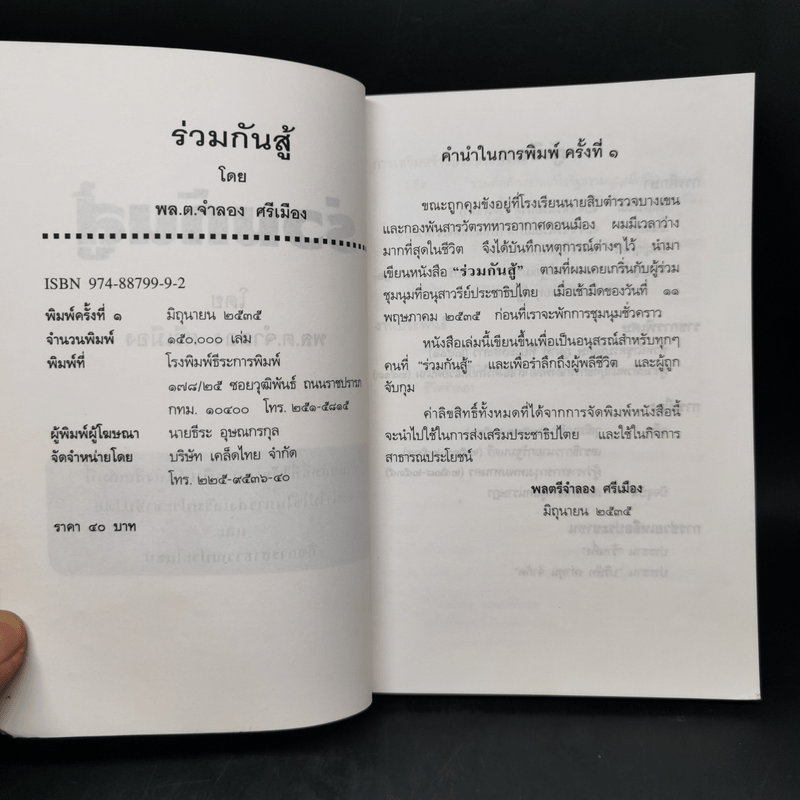 ร่วมกันสู้
โดย
พล.ต.จำลอง ศรีเมือง
ISBN 974-88799-9-2
พิมพ์ครั้งที่ ๑ มิถุนายน ๒๕๓๕
จำนวนพิมพ์ ๑๕๐,๐๐๐ เล่ม
พิมพ์ที่ โรงพิมพ์ธีระการพิมพ์
๑๗๘/๒๕ ซอยวุฒิพันธ์ ถนนราชปรารภ
กทม. ๑๐๔๐๐ โทร. ๒๕๑-๕๘๑๕
ผู้พิมพ์ผู้โฆษณา นายธีระ อุษณกรกุล
จัดจำหน่ายโดย บริษัท เคล็ดไทย จำกัด
โทร. ๒๒๕-๙๕๓๖-๔๐
ราคา ๔๐ บาท
คำนำในการพิมพ์ ครั้งที่ ๑
ขณะถูกคุมขังอยู่ที่โรงเรียนนายสิบตำรวจบางเขน
และกองพันสารวัตรทหารอากาศดอนเมือง ผมมีเวลาว่าง
มากที่สุดในชีวิต จึงได้บันทึกเหตุการณ์ต่างๆไว้ นำมา
เขียนหนังสือ “ร่วมกันสู้” ตามที่ผมเคยเกริ่นกับผู้ร่วม
ชุมนุมที่อนุสาวรีย์ประชาธิปไตย เมื่อเช้ามืดของวันที่ ๑๑
พฤษภาคม ๒๕๓๕ ก่อนที่เราจะพักการชุมนุมชั่วคราว
หนังสือเล่มนี้เขียนขึ้นเพื่อเป็นอนุสรณ์สำหรับทุกๆ
คนที่ “ร่วมกันสู้” และเพื่อรำลึกถึงผู้พลีชีวิต และผู้ถูก
จับกุม
ค่าลิขสิทธิ์ทั้งหมดที่ได้จากการจัดพิมพ์หนังสือนี้
จะนำไปใช้ในการส่งเสริมประชาธิปไตย และใช้ในกิจการ
สาธารณประโยชน์
พลตรีจำลอง ศรีเมือง
มิถุนายน ๒๕๓๕